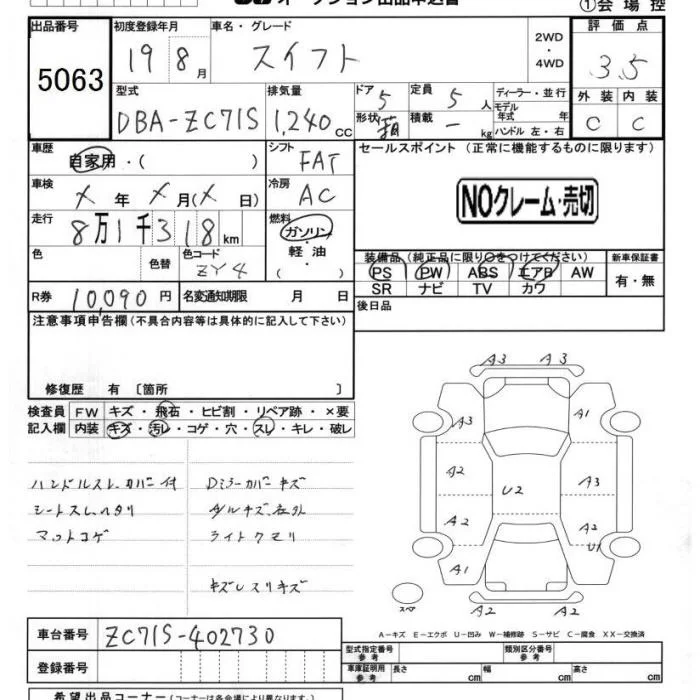 オークション出品申込書
①会場控
出品番号 初度登録年月 車名・グレード 2WD ・ 4WD 評価点
5063 19 8月 スイフト 3.5
型式 排気量 ドア 定員 ディーラー・並行
DBA-ZC71S 1,240cc 5 5人 モデル年式 年 外装 内装
形状 箱 積載 - kg ハンドル 左・右 C C
車歴 自家用・( ) シフト FAT セールスポイント (正常に機能するものに限ります)
車検 X年X月(X日) 冷房 AC
NOクレーム・売切
走行 8万1千318km 燃料 ガソリン・軽油・( )
色 色替 色コード ZY4
装備品(純正品に限り○をつけてください) 新車保証書
PS PW ABS エアB AW 有・無
SR ナビ TV カワ
R券 10,090円 名変通知期限 月 日
後日品
注意事項申告欄(不具合内容等は具体的に記入して下さい)
修復歴 有 〔箇所 〕
検査員 FW キズ・飛石・ヒビ割・リペア跡・×要
記入欄 内装 キズ・汚レ・コゲ・穴・スレ・キレ・破レ
A3 A3
A3 A1
A2 A3
U2
A2 A2
U1
A1
A2 A2
スペア
ハンドルスレ カバー付 Dミラーカバーキズ
シートスレ、ヘタリ
マットコゲ ライトクモリ
キズレスリキズ
A-キズ E-エクボ U-凹み W-補修跡 S-サビ C-腐食 XX-交換済
車台番号 ZC71S-402730
型式指定番号 参考 類別区分番号 参考
登録番号
車庫証明用 参考 長さ cm 幅 cm 高さ cm
希望出品コーナー(コーナーは各会場により異なります)